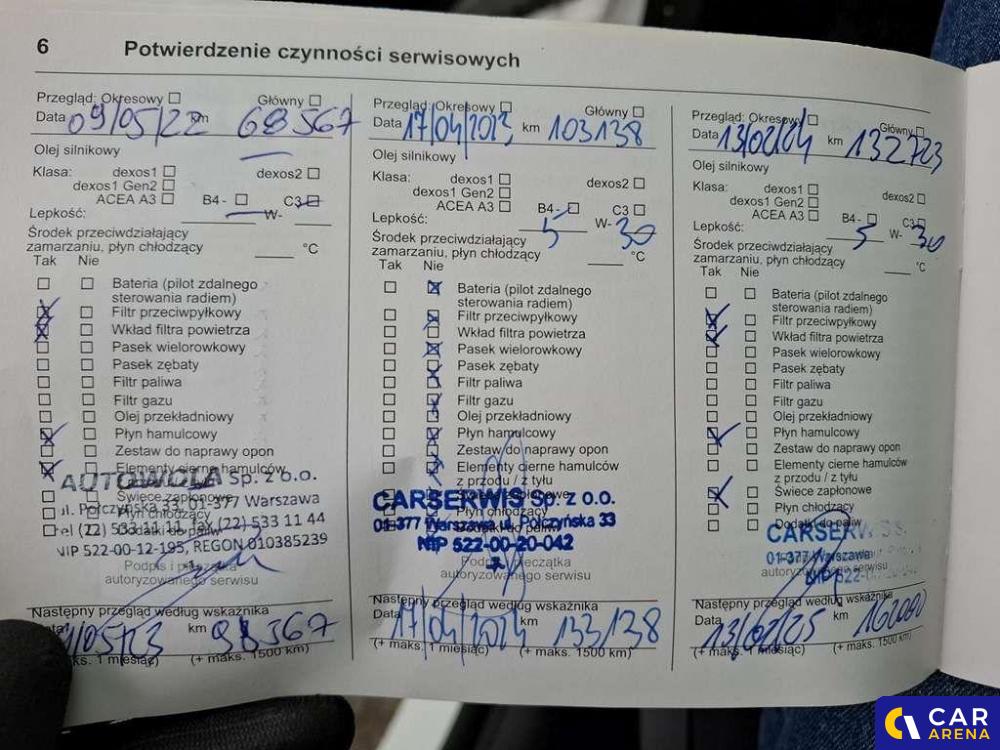 6
Potwierdzenie czynności serwisowych
Przegląd: Okresowy
Główny
Data 09/05/22 km 68567
Olej silnikowy
Klasa: dexos1
dexos2
dexos1 Gen2
ACEA A3
B4 -
C3
Lepkość:
W-
Środek przeciwdziałający
zamarzaniu, płyn chłodzący
°C
Tak Nie
Bateria (pilot zdalnego
sterowania radiem)
Filtr przeciwpyłkowy
Wkład filtra powietrza
Pasek wielorowkowy
Pasek zębaty
Filtr paliwa
Filtr gazu
Olej przekładniowy
Płyn hamulcowy
Zestaw do naprawy opon
Elementy cierne hamulców
AUTOWOLA Sp. z o.o.
Świece zapłonowe
ul. Połczyńska 33, 01-377 Warszawa
Płyn chłodzący
tel (22) 533 11 11, fax (22) 533 11 44
Dodatki do paliw
NIP 522-00-12-195, REGON 010385239
Podpis i pieczątka
autoryzowanego serwisu
Następny przegląd według wskaźnika
Data /05/23 km 98567
(+ maks. 1 miesiąc) (+ maks. 1500 km)
Przegląd: Okresowy
Główny
Data 17/04/2023 km 103138
Olej silnikowy
Klasa: dexos1
dexos2
dexos1 Gen2
ACEA A3
B4 -
C3
Lepkość: 5 W- 30
Środek przeciwdziałający
zamarzaniu, płyn chłodzący
°C
Tak Nie
Bateria (pilot zdalnego
sterowania radiem)
Filtr przeciwpyłkowy
Wkład filtra powietrza
Pasek wielorowkowy
Pasek zębaty
Filtr paliwa
Filtr gazu
Olej przekładniowy
Płyn hamulcowy
Zestaw do naprawy opon
Elementy cierne hamulców
z przodu / z tyłu
Świece zapłonowe
CARSERWIS Sp. z o.o.
Płyn chłodzący
01-377 Warszawa ul. Połczyńska 33
Dodatki do paliw
NIP 522-00-20-042
7
Podpis i pieczątka
autoryzowanego serwisu
Następny przegląd według wskaźnika
Data 17/04/2024 km 133138
(+ maks. 1 miesiąc) (+ maks. 1500 km)
Przegląd: Okresowy
Główny
Data 13/02/24 km 132723
Olej silnikowy
Klasa: dexos1
dexos2
dexos1 Gen2
ACEA A3
B4 -
C3
Lepkość: 5 W- 30
Środek przeciwdziałający
zamarzaniu, płyn chłodzący
°C
Tak Nie
Bateria (pilot zdalnego
sterowania radiem)
Filtr przeciwpyłkowy
Wkład filtra powietrza
Pasek wielorowkowy
Pasek zębaty
Filtr paliwa
Filtr gazu
Olej przekładniowy
Płyn hamulcowy
Zestaw do naprawy opon
Elementy cierne hamulców
z przodu / z tyłu
Świece zapłonowe
Płyn chłodzący
Dodatki do paliw
CARSERW
01-377 Warszawa
autoryzowanego serwisu
NIP 522-
Następny przegląd według wskaźnika
Data 13/02/25 km 162000
(+ maks. 1 miesiąc) (+ maks. 1500 km)
CAR
ARENA